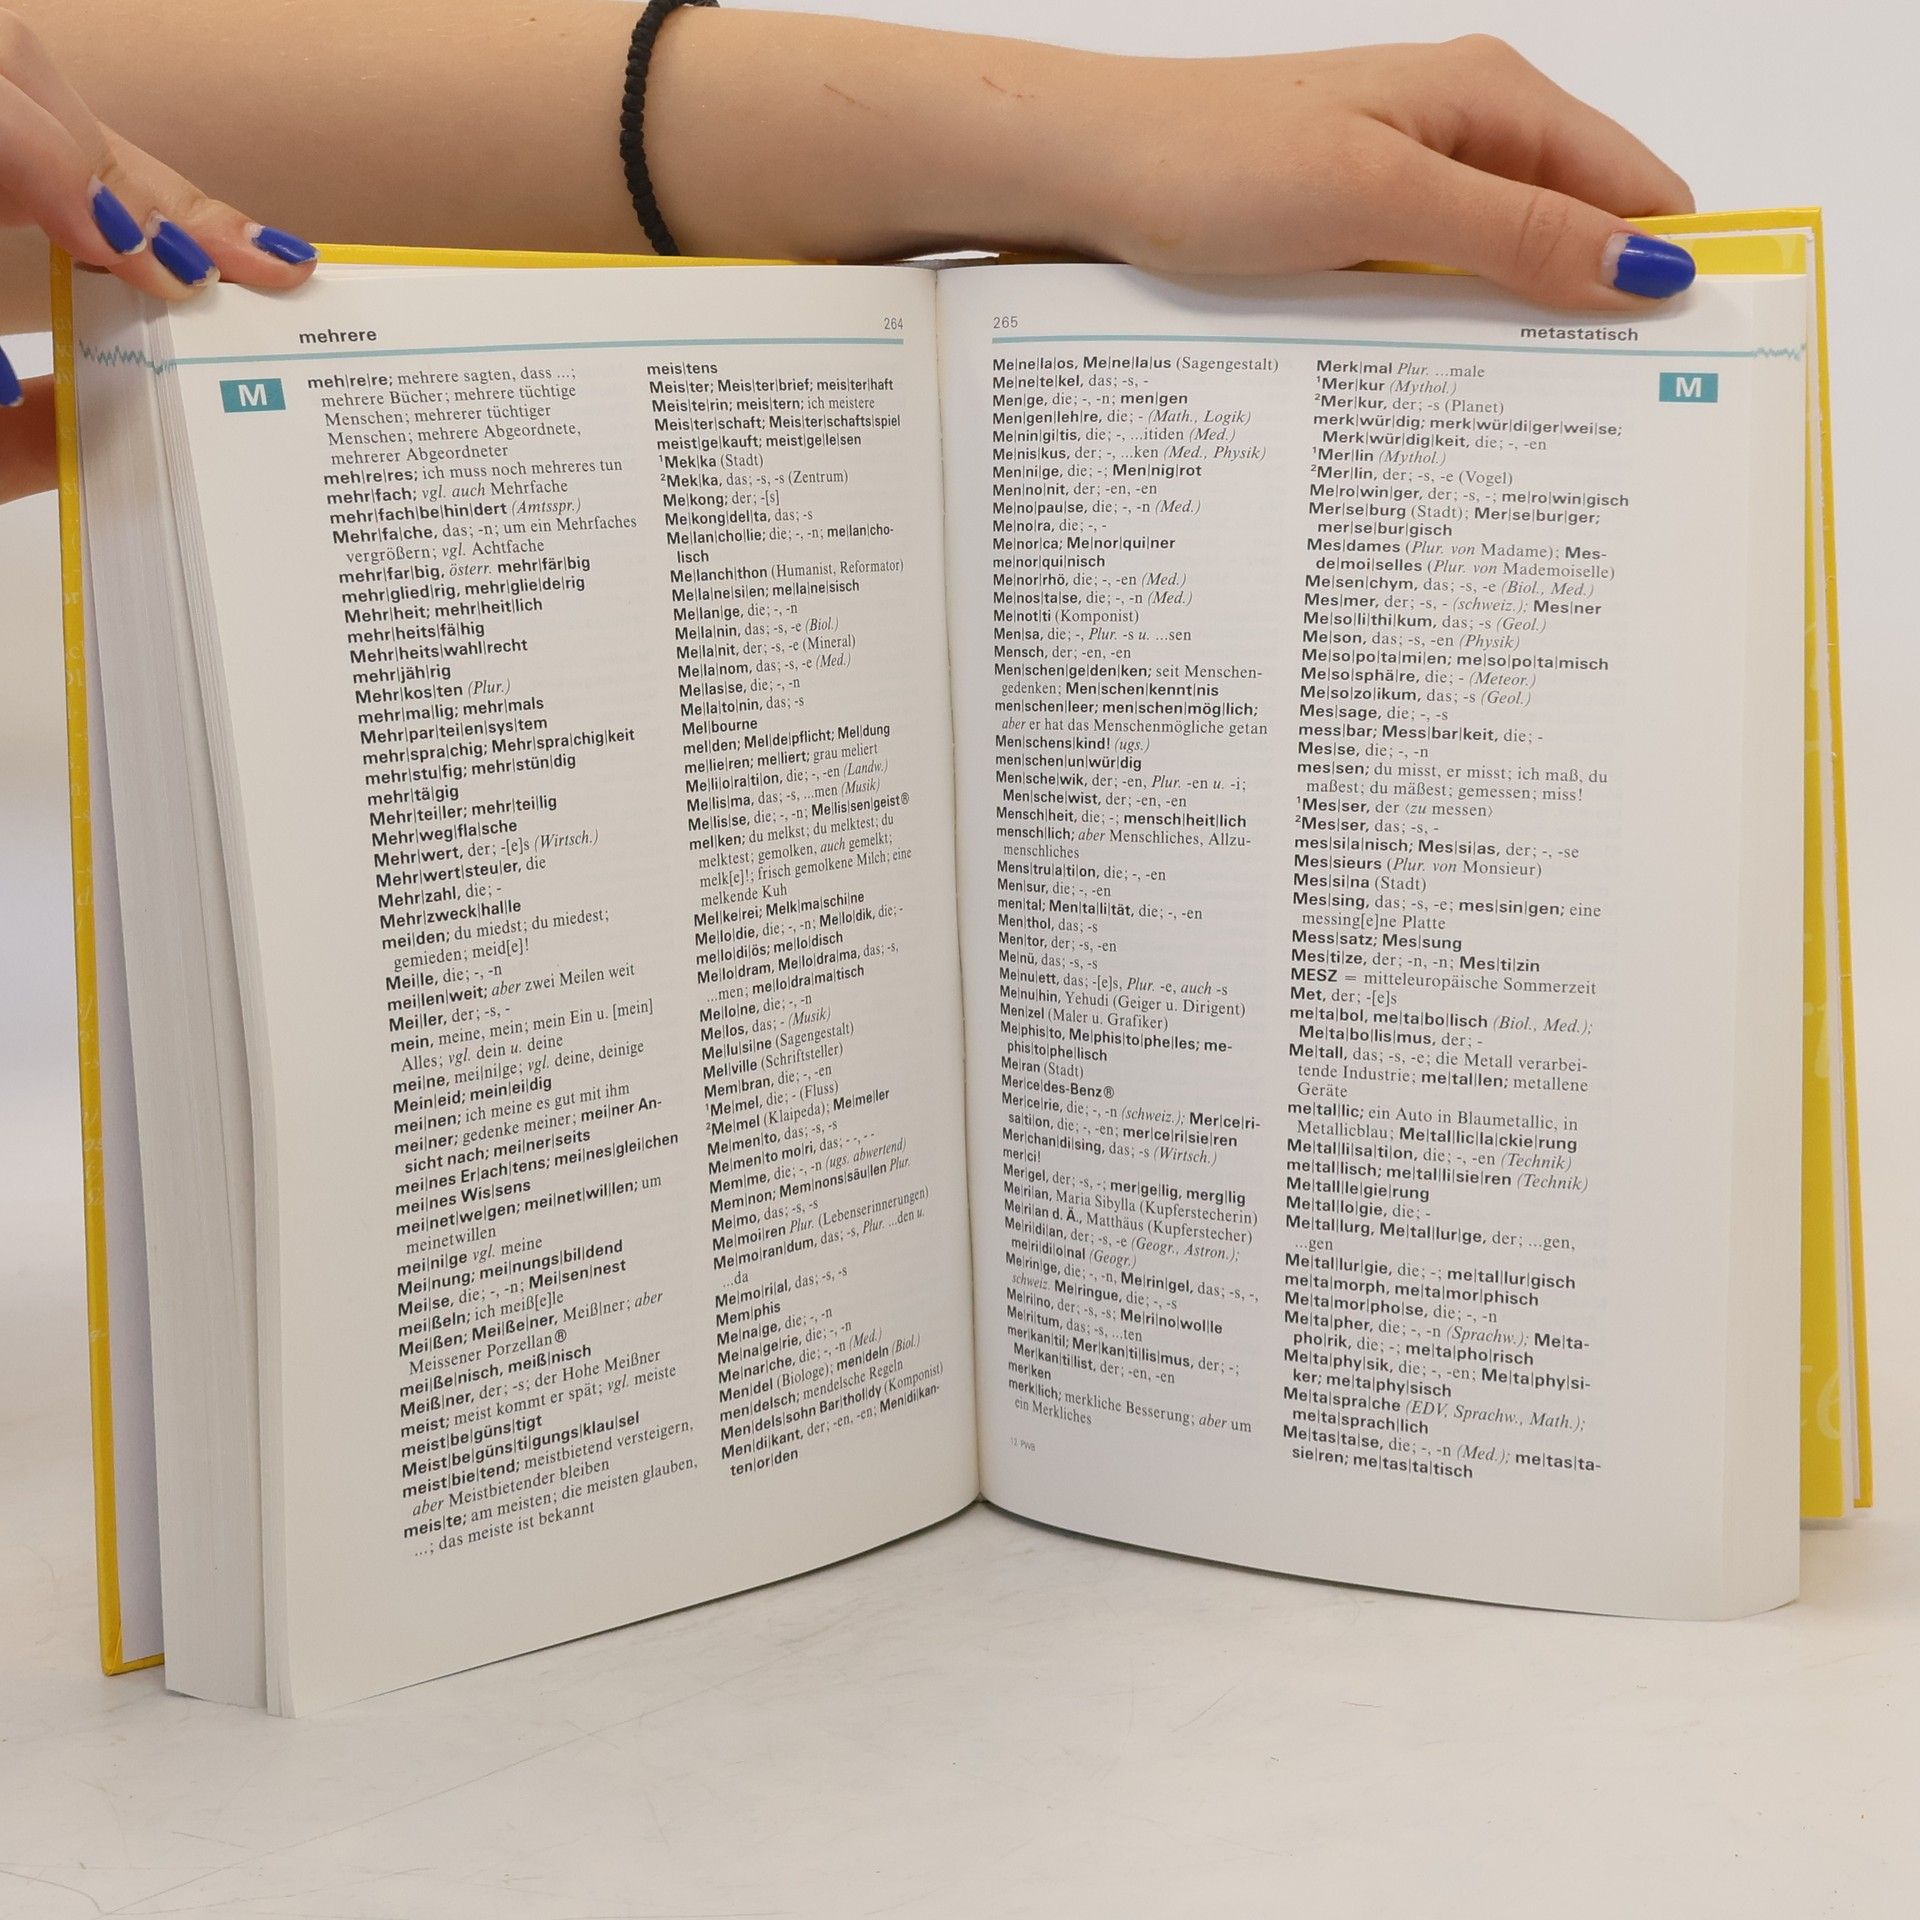 mehrere
264
M
meh|re|re; mehrere sagten, dass ...;
mehrere Bücher; mehrere tüchtige
Menschen; mehrerer tüchtiger
Menschen; mehrere Abgeordnete,
mehrerer Abgeordneter
meh|re|res; ich muss noch mehreres tun
mehr|fach; vgl. auch Mehrfache
mehr|fach|be|hin|dert (Amtsspr.)
Mehr|fa|che, das; -n; um ein Mehrfaches
vergrößern; vgl. Achtfache
mehr|far|big, österr. mehr|fär|big
mehr|glied|rig, mehr|glie|de|rig
Mehr|heit; mehr|heit|lich
mehr|heits|fä|hig
Mehr|heits|wahl|recht
mehr|jäh|rig
Mehr|kos|ten (Plur.)
mehr|ma|lig; mehr|mals
Mehr|par|tei|en|sys|tem
mehr|spra|chig; Mehr|spra|chig|keit
mehr|stu|fig; mehr|stün|dig
mehr|tä|gig
Mehr|tei|ler; mehr|tei|lig
Mehr|weg|fla|sche
Mehr|wert, der; -[e]s (Wirtsch.)
Mehr|wert|steu|er, die
Mehr|zahl, die; -
Mehr|zweck|hal|le
mei|den; du miedst; du miedest;
gemieden; meid[e]!
Mei|le, die; -, -n
mei|len|weit; aber zwei Meilen weit
Mei|ler, der; -s, -
mein, meine, mein; mein Ein u. [mein]
Alles; vgl. dein u. deine
mei|ne, mei|ni|ge; vgl. deine, deinige
Mein|eid; mein|ei|dig
mei|nen; ich meine es gut mit ihm
mei|ner; gedenke meiner; mei|ner An-
sicht nach; mei|ner|seits
mei|nes Er|ach|tens; mei|nes|glei|chen
mei|nes Wis|sens
mei|net|we|gen; mei|net|wil|len; um
meinetwillen
mei|ni|ge vgl. meine
Mei|nung; mei|nungs|bil|dend
Mei|se, die; -, -n; Mei|sen|nest
mei|ßeln; ich meiß[e]le
Mei|ßen; Mei|ße|ner, Meiß|ner; aber
Meissener Porzellan®
mei|ße|nisch, meiß|nisch
Meiß|ner, der; -s; der Hohe Meißner
meist; meist kommt er spät; vgl. meiste
meist|be|güns|tigt
Meist|be|güns|ti|gungs|klau|sel
meist|bie|tend; meistbietend versteigern,
aber Meistbietender bleiben
meis|te; am meisten; die meisten glauben,
...; das meiste ist bekannt
meis|tens
Meis|ter; Meis|ter|brief; meis|ter|haft
Meis|te|rin; meis|tern; ich meistere
Meis|ter|schaft; Meis|ter|schafts|spiel
meist|ge|kauft; meist|ge|le|sen
¹Mek|ka (Stadt)
²Mek|ka, das; -s, -s (Zentrum)
Me|kong; der; -[s]
Me|kong|del|ta, das; -s
Me|lan|cho|lie; die; -, -n; me|lan|cho-
lisch
Me|lanch|thon (Humanist, Reformator)
Me|la|ne|si|en; me|la|ne|sisch
Me|lan|ge, die; -, -n
Me|la|nin, das; -s, -e (Biol.)
Me|la|nit, der; -s, -e (Mineral)
Me|la|nom, das; -s, -e (Med.)
Me|las|se, die; -, -n
Me|la|to|nin, das; -s
Mel|bourne
mel|den; Mel|de|pflicht; Mel|dung
me|lie|ren; me|liert; grau meliert
Me|li|o|ra|ti|on, die; -, -en (Landw.)
Me|lis|ma, das; -s, ...men (Musik)
Me|lis|se, die; -, -n; Me|lis|sen|geist®
mel|ken; du melkst; du melktest; du
melktest; gemolken, auch gemelkt;
melk[e]!; frisch gemolkene Milch; eine
melkende Kuh
Mel|ke|rei; Melk|ma|schi|ne
Me|lo|die, die; -, -n; Me|lo|dik, die; -
me|lo|di|ös; me|lo|disch
Me|lo|dram, Me|lo|dra|ma, das; -s,
...men; me|lo|dra|ma|tisch
Me|lo|ne, die; -, -n
Me|los, das; - (Musik)
Me|lu|si|ne (Sagengestalt)
Mel|ville (Schriftsteller)
Mem|bran, die; -, -en
¹Me|mel, die; - (Fluss)
²Me|mel (Klaipeda); Me|me|ler
Me|men|to, das; -s, -s
Me|men|to mo|ri, das; - -, - -
Mem|me, die; -, -n (ugs. abwertend)
Mem|non; Mem|nons|säu|len Plur.
Me|mo, das; -s, -s
Me|moi|ren Plur. (Lebenserinnerungen)
Me|mo|ran|dum, das; -s, Plur. ...den u.
...da
Me|mo|ri|al, das; -s, -s
Mem|phis
Me|na|ge, die; -, -n
Me|na|ge|rie, die; -, -n
Me|nar|che, die; -, -n (Med.)
Men|del (Biologe); men|deln (Biol.)
men|delsch; mendelsche Regeln
Men|dels|sohn Bar|thol|dy (Komponist)
Men|di|kant, der; -en, -en; Men|di|kan-
ten|or|den
265
metastatisch
M
Me|ne|la|os, Me|ne|la|us (Sagengestalt)
Me|ne|te|kel, das; -s, -
Men|ge, die; -, -n; men|gen
Men|gen|leh|re, die; - (Math., Logik)
Me|nin|gi|tis, die; -, ...itiden (Med.)
Me|nis|kus, der; -, ...ken (Med., Physik)
Men|ni|ge, die; -; Men|nig|rot
Men|no|nit, der; -en, -en
Me|no|pau|se, die; -, -n (Med.)
Me|no|ra, die; -, -
Me|nor|ca; Me|nor|qui|ner
me|nor|qui|nisch
Me|nor|rhö, die; -, -en (Med.)
Me|nos|ta|se, die; -, -n (Med.)
Me|not|ti (Komponist)
Men|sa, die; -, Plur. -s u. ...sen
Mensch, der; -en, -en
Men|schen|ge|den|ken; seit Menschen-
gedenken; Men|schen|kennt|nis
men|schen|leer; men|schen|mög|lich;
aber er hat das Menschenmögliche getan
Men|schens|kind! (ugs.)
men|schen|un|wür|dig
Men|sche|wik, der; -en, Plur. -en u. -i;
Men|sche|wist, der; -en, -en
Mensch|heit, die; -; mensch|heit|lich
mensch|lich; aber Menschliches, Allzu-
menschliches
Mens|tru|a|ti|on, die; -, -en
Men|sur, die; -, -en
men|tal; Men|ta|li|tät, die; -, -en
Men|thol, das; -s
Men|tor, der; -s, -en
Me|nü, das; -s, -s
Me|nu|ett, das; -[e]s, Plur. -e, auch -s
Me|nu|hin, Yehudi (Geiger u. Dirigent)
Men|zel (Maler u. Grafiker)
Me|phis|to, Me|phis|to|phe|les; me-
phis|to|phe|lisch
Me|ran (Stadt)
Mer|ce|des-Benz®
Mer|ce|rie, die; -, -n (schweiz.); Mer|ce|ri-
sa|ti|on, die; -, -en; mer|ce|ri|sie|ren
Mer|chan|di|sing, das; -s (Wirtsch.)
mer|ci!
Mer|gel, der; -s, -; mer|ge|lig, merg|lig
Me|ri|an, Maria Sibylla (Kupferstecherin)
Me|ri|an d. Ä., Matthäus (Kupferstecher)
Me|ri|di|an, der; -s, -e (Geogr., Astron.);
me|ri|di|o|nal (Geogr.)
Me|rin|ge, die; -, -n, Me|rin|gel, das; -s, -,
schweiz. Me|ringue, die; -, -s
Me|ri|no, der; -s, -s; Me|ri|no|wol|le
Me|ri|tum, das; -s, ...ten
mer|kan|til; Mer|kan|ti|lis|mus, der; -;
Mer|kan|ti|list, der; -en, -en
mer|ken
merk|lich; merkliche Besserung; aber um
ein Merkliches
12 PWB
Merk|mal Plur. ...male
¹Mer|kur (Mythol.)
²Mer|kur, der; -s (Planet)
merk|wür|dig; merk|wür|di|ger|wei|se;
Merk|wür|dig|keit, die; -, -en
¹Mer|lin (Mythol.)
²Mer|lin, der; -s, -e (Vogel)
Me|ro|win|ger, der; -s, -; me|ro|win|gisch
Mer|se|burg (Stadt); Mer|se|bur|ger;
mer|se|bur|gisch
Mes|dames (Plur. von Madame); Mes-
de|moi|selles (Plur. von Mademoiselle)
Me|sen|chym, das; -s, -e (Biol., Med.)
Mes|mer, der; -s, - (schweiz.); Mes|ner
Me|so|li|thi|kum, das; -s (Geol.)
Me|son, das; -s, -en (Physik)
Me|so|po|ta|mi|en; me|so|po|ta|misch
Me|so|sphä|re, die; - (Meteor.)
Me|so|zo|i|kum, das; -s (Geol.)
Mes|sage, die; -, -s
mess|bar; Mess|bar|keit, die; -
Mes|se, die; -, -n
mes|sen; du misst, er misst; ich maß, du
maßest; du mäßest; gemessen; miss!
¹Mes|ser, der ⟨zu messen⟩
²Mes|ser, das; -s, -
mes|si|a|nisch; Mes|si|as, der; -, -se
Mes|sieurs (Plur. von Monsieur)
Mes|si|na (Stadt)
Mes|sing, das; -s, -e; mes|sin|gen; eine
messing[e]ne Platte
Mess|satz; Mes|sung
Mes|ti|ze, der; -n, -n; Mes|ti|zin
MESZ = mitteleuropäische Sommerzeit
Met, der; -[e]s
me|ta|bol, me|ta|bo|lisch (Biol., Med.);
Me|ta|bo|lis|mus, der; -
Me|tall, das; -s, -e; die Metall verarbei-
tende Industrie; me|tal|len; metallene
Geräte
me|tal|lic; ein Auto in Blaumetallic, in
Metallicblau; Me|tal|lic|la|ckie|rung
Me|tal|li|sa|ti|on, die; -, -en (Technik)
me|tal|lisch; me|tal|li|sie|ren (Technik)
Me|tall|le|gie|rung
Me|tal|lo|gie, die; -
Me|tal|lurg, Me|tal|lur|ge, der; ...gen,
...gen
Me|tal|lur|gie, die; -; me|tal|lur|gisch
me|ta|morph, me|ta|mor|phisch
Me|ta|mor|pho|se, die; -, -n
Me|ta|pher, die; -, -n (Sprachw.); Me|ta-
pho|rik, die; -; me|ta|pho|risch
Me|ta|phy|sik, die; -, -en; Me|ta|phy|si-
ker; me|ta|phy|sisch
Me|ta|spra|che (EDV, Sprachw., Math.);
me|ta|sprach|lich
Me|tas|ta|se, die; -, -n (Med.); me|tas|ta-
sie|ren; me|tas|ta|tisch